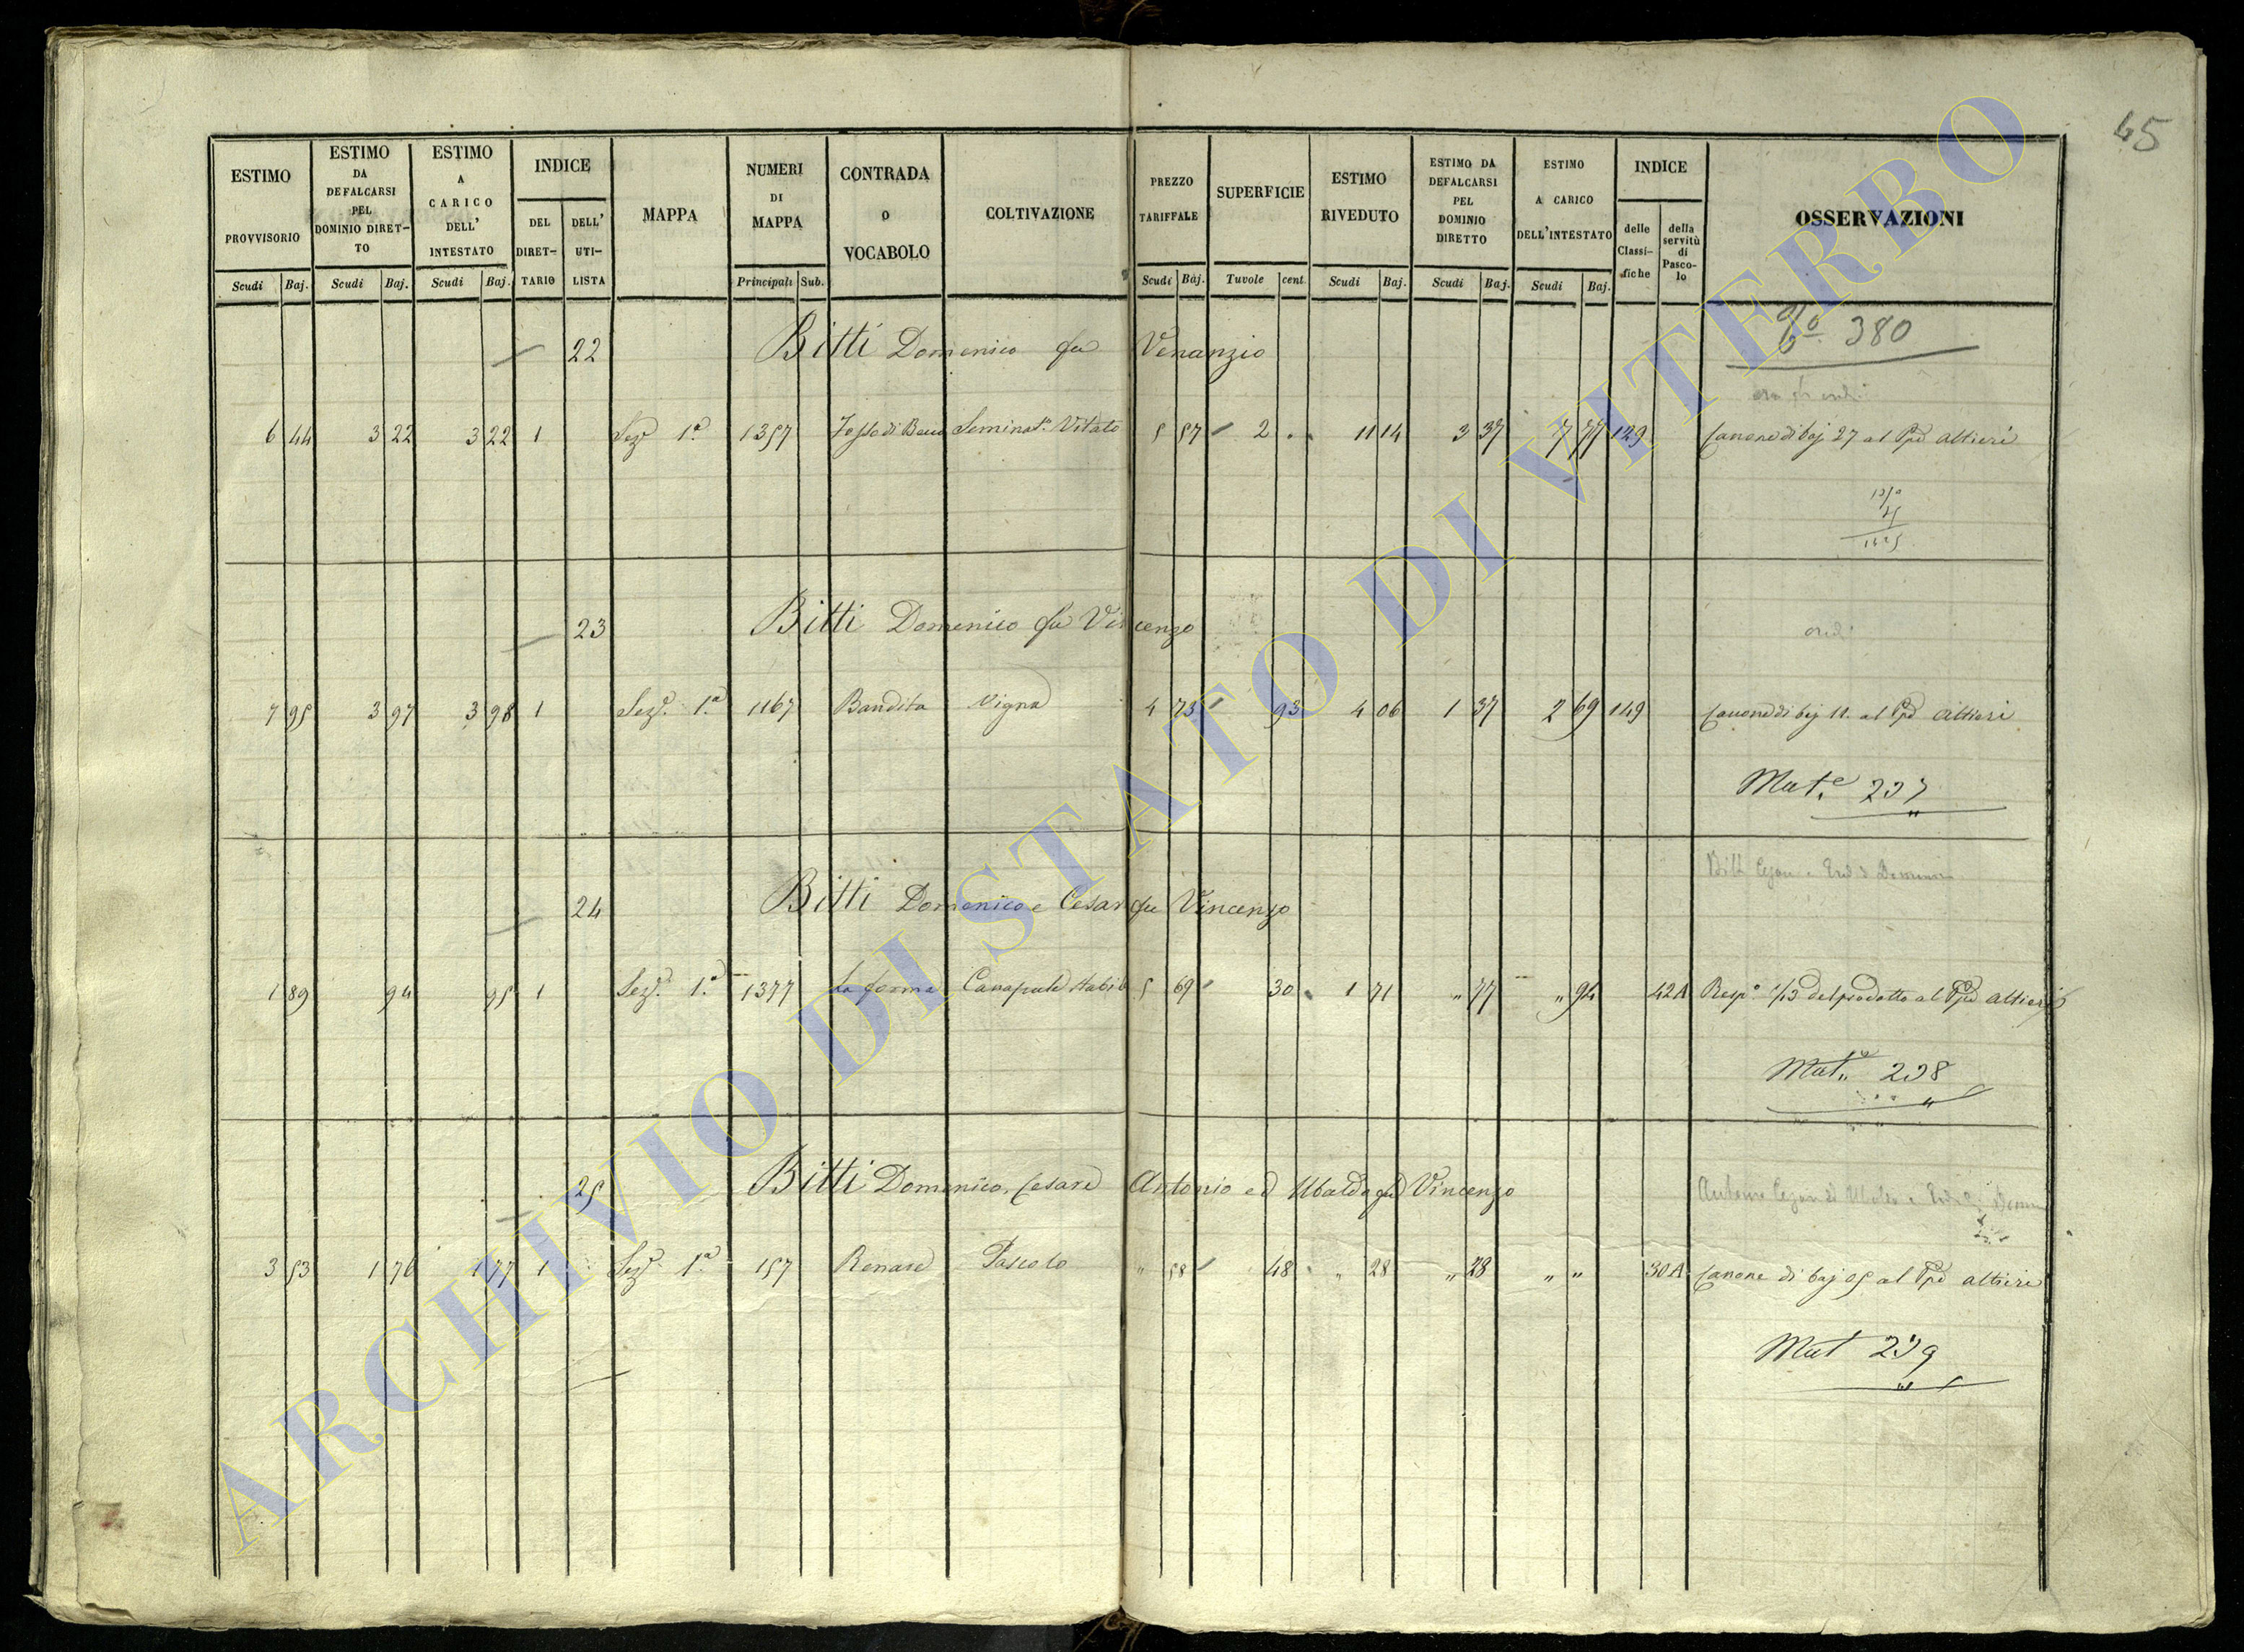 45
ESTIMO PROVVISORIO
ESTIMO DA DEFALCARSI PEL DOMINIO DIRET-TO
ESTIMO A CARICO DELL' INTESTATO
INDICE
DEL DIRET-TARIO
DELL' UTI-LISTA
MAPPA
NUMERI DI MAPPA
CONTRADA O VOCABOLO
COLTIVAZIONE
PREZZO TARIFFALE
SUPERFICIE
ESTIMO RIVEDUTO
ESTIMO DA DEFALCARSI PEL DOMINIO DIRETTO
ESTIMO A CARICO DELL'INTESTATO
INDICE
delle Classi-fiche
della servitù di Pasco-lo
OSSERVAZIONI
Scudi Baj. Scudi Baj. Scudi Baj. Principali Sub. Scudi Baj. Tavole cent. Scudi Baj. Scudi Baj. Scudi Baj.
22 Bitti Domenico fu Venanzio
380
6 44 3 22 3 22 1 Sezᵉ 1.ª 1357 Seminatº Vitato 5 57 2 11 14 3 37 7 77 129 Canone di baj 27 al Ppe Altieri
23 Bitti Domenico fu Vincenzo
ered:
7 95 3 97 3 98 1 Sezᵉ. 1.ª 1167 Bandita Vigna 4 73 93 4 06 1 37 2 69 149 Canone di baj 11. al Ppe Altieri
Mat.e 237
Bitti Cesare e Ered di Domenico
24 Bitti Domenico e Cesare fu Vincenzo
1 89 94 95 1 Sezᵉ. 1.ª 1377 La forma Canapule stabile 5 69 30 1 71 " 77 " 94 42A Resp.ª 1/13 del prodotto al Ppe Altieri
Mat.e 238
25 Bitti Domenico, Cesare Antonio ed Ubaldo fu Vincenzo
3 53 1 76 1 77 1 Sezᵉ 1.ª 157 Renare Pascolo " 58 48 " 28 " 28 " " 30A Canone di baj 05 al Ppe Altieri
Mat 239
ARCHIVIO DI STATO DI VITERBO